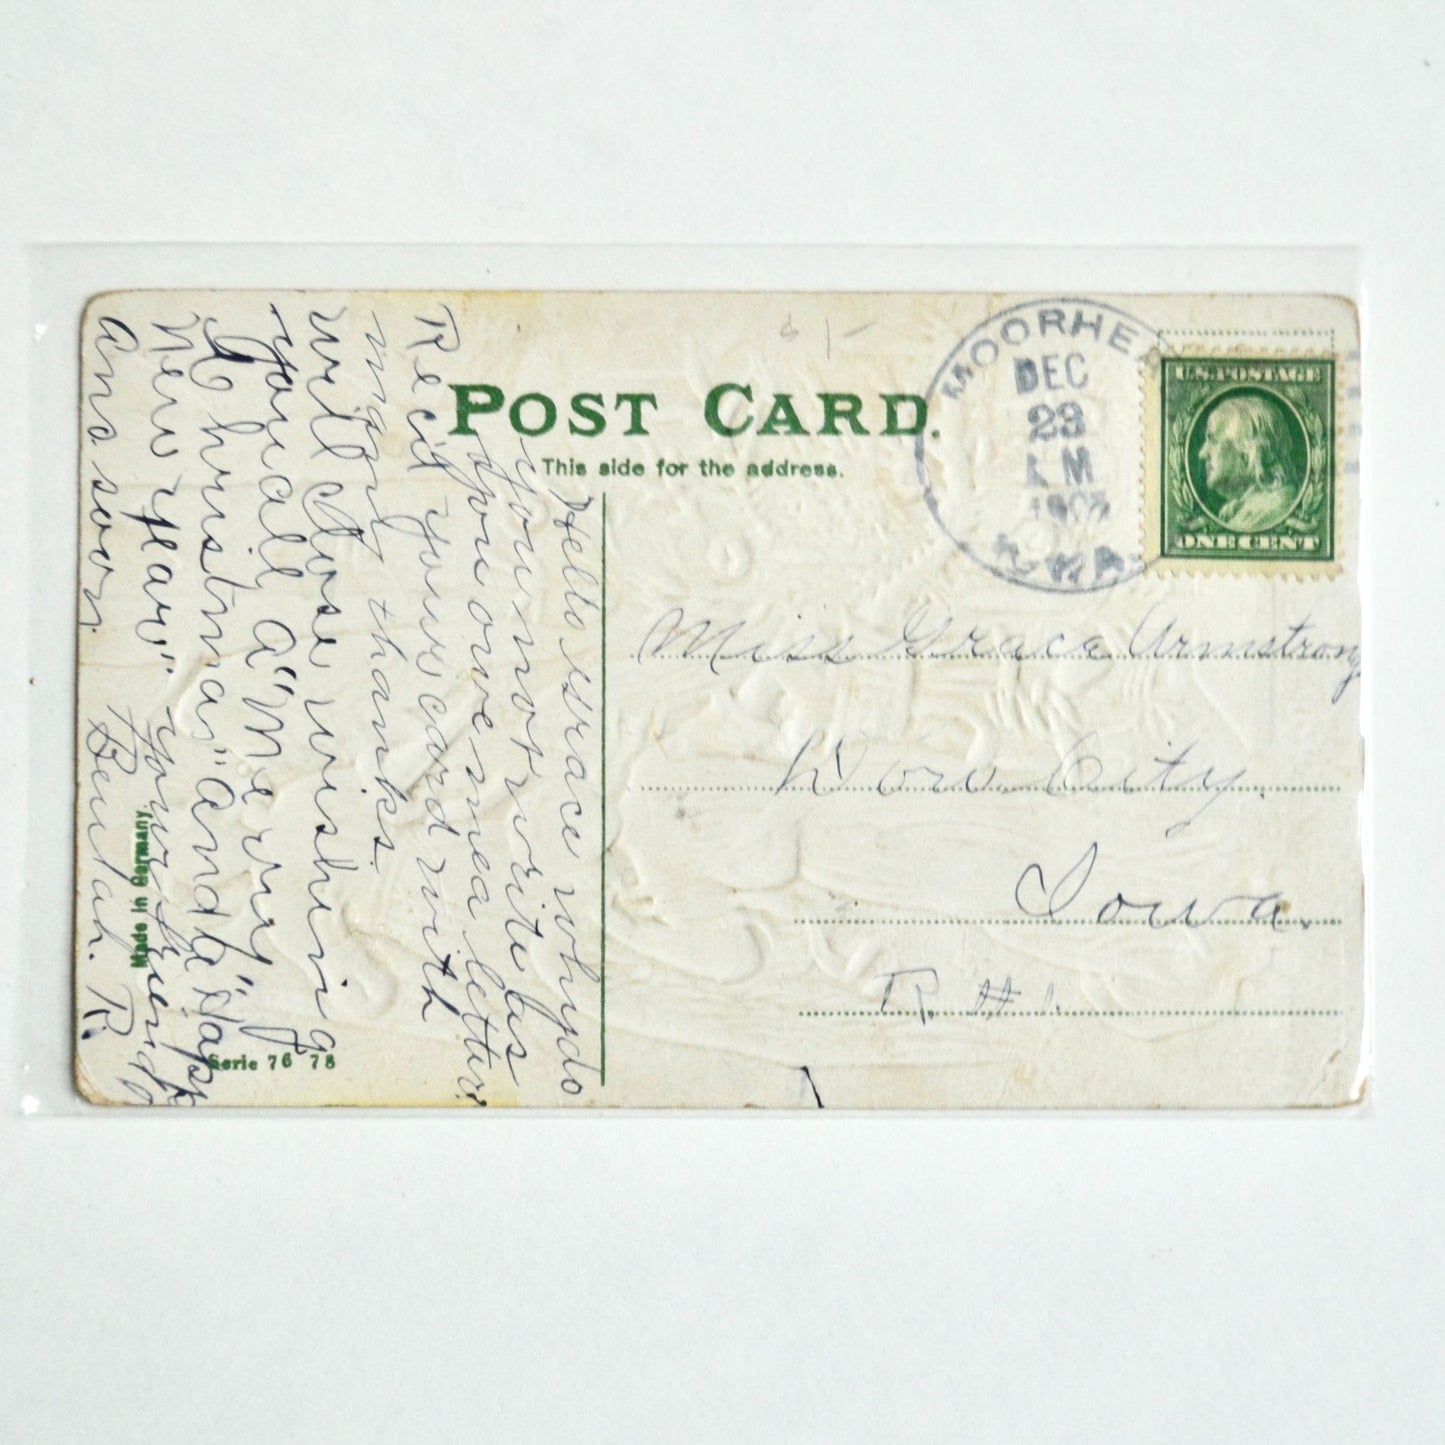 POST CARD.
This side for the address.
MOORHE
DEC
23
M
U.S. POSTAGE
ONE CENT
Miss Grace Armstrong
Dow City.
Iowa.
R. #1.
Hello Grace why do
you not write as
you owe me a letter.
Rec'd your card with
many thanks.
will close wishing
you all a "Merry
Christmas" and a "Happy
New Year". Your friend
Ans soon. Beulah. R.
Made in Germany
Serie 76 78